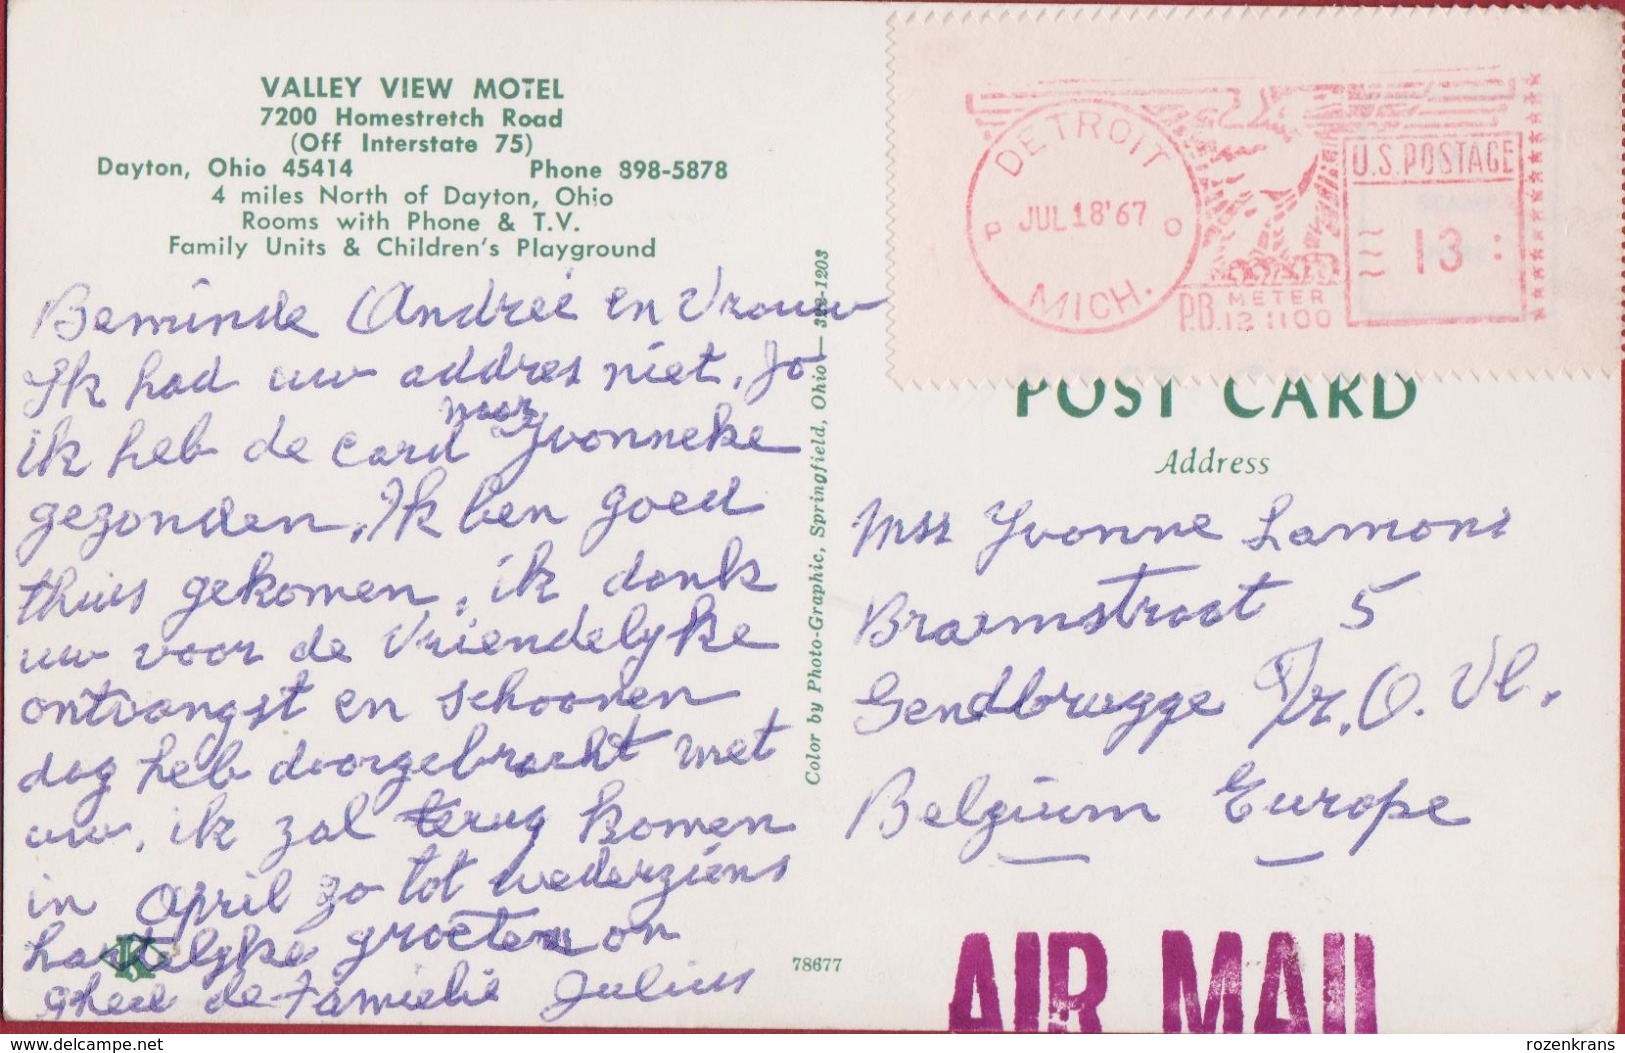 VALLEY VIEW MOTEL
7200 Homestretch Road
(Off Interstate 75)
Dayton, Ohio 45414 Phone 898-5878
4 miles North of Dayton, Ohio
Rooms with Phone & T.V.
Family Units & Children's Playground
Beminde Andreé en Vrouw
Ik had uw addres niet, Zo
ik heb de card naar Yvonneke
gezonden, Ik ben goed
thuis gekomen, ik dank
uw voor de Vriendelyke
ontvangst en schoonen
dag heb doorgebracht met
uw, ik zal terug komen
in April zo tot wederziens
hartelyke groeten on
gheel de Familie Julius
K
78677
Color by Photo-Graphic, Springfield, Ohio — 392-1203
DETROIT
P JUL 18 '67 O
MICH.
U.S. POSTAGE
13
P.B. METER
121100
POST CARD
Address
Mss Yvonne Lamons
Braemstraat 5
Gendbrugge Pr. O. Vl.
Belgium Europe
AIR MAIL
delcampe.net
rozenkrans